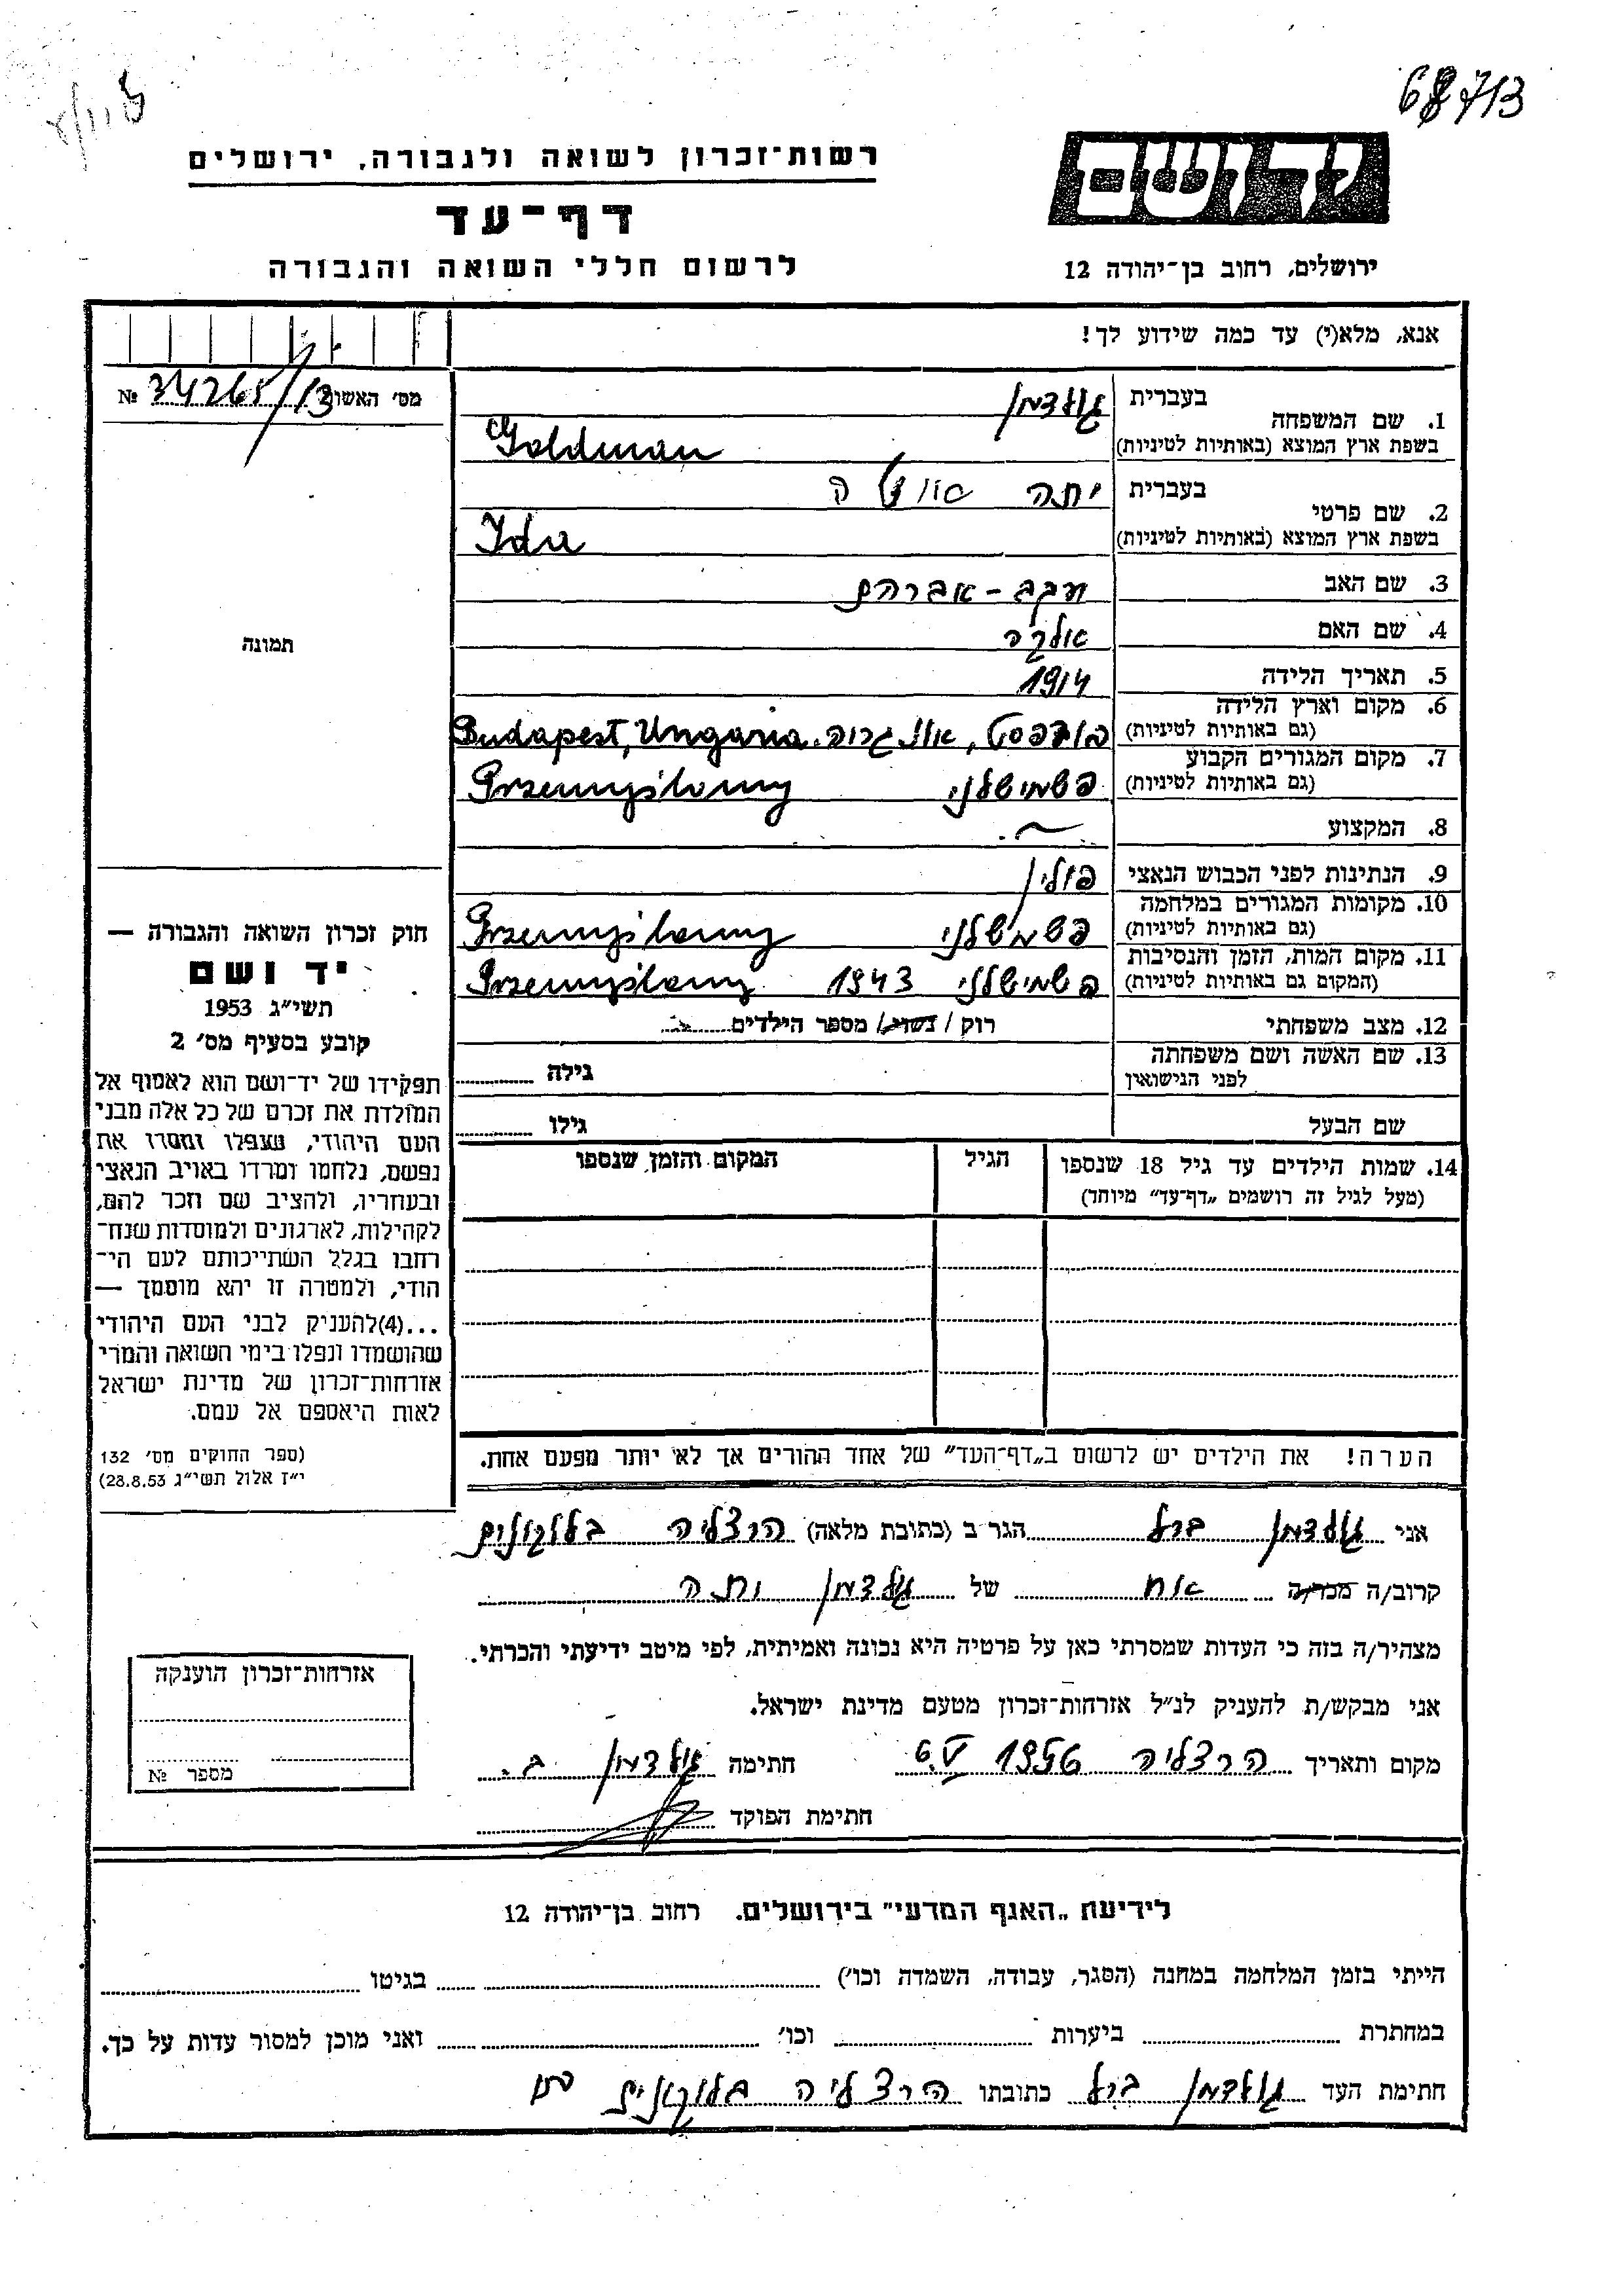 68713
רשות־זכרון לשואה ולגבורה, ירושלים
יד ושם
דף־עד
לרשום חללי השואה והגבורה
ירושלים, רחוב בן־יהודה 12
אנא, מלא(י) עד כמה שידוע לך!
מס׳ האשון № 34265/13
1. שם המשפחה
בעברית גולדמן
בשפת ארץ המוצא (באותיות לטיניות) Goldman
2. שם פרטי
בעברית יתה
בשפת ארץ המוצא (באותיות לטיניות) Ida
3. שם האב יעקב - אברהם
4. שם האם
5. תאריך הלידה 1914
6. מקום וארץ הלידה
(גם באותיות לטיניות) בודפסט, אונגריה. Budapest, Ungaria
7. מקום המגורים הקבוע
(גם באותיות לטיניות) פשמישלני Przemyślany
8. המקצוע
9. הנתינות לפני הכבוש הנאצי פולין
10. מקומות המגורים במלחמה
(גם באותיות לטיניות) פשמישלני Przemyślany
11. מקום המות, הזמן והנסיבות
(המקום גם באותיות לטיניות) פשמישלני 1943 Przemyślany
12. מצב משפחתי רוק / נשוי / מספר הילדים
13. שם האשה ושם משפחתה
לפני הנישואין גילה
שם הבעל גילו
14. שמות הילדים עד גיל 18 שנספו הגיל המקום והזמן שנספו
(מעל לגיל זה רושמים „דף־עד״ מיוחד)
הערה! את הילדים יש לרשום ב„דף־העד״ של אחד ההורים אך לא יותר מפעם אחת.
תמונה
חוק זכרון השואה והגבורה —
יד ושם
תשי״ג 1953
קובע בסעיף מס׳ 2
תפקידו של יד־ושם הוא לאסוף אל
המולדת את זכרם של כל אלה מבני
העם היהודי, שנפלו ומסרו את
נפשם, נלחמו ומרדו באויב הנאצי
ובעוזריו, ולהציב שם וזכר להם,
לקהילות, לארגונים ולמוסדות שנח־
רחבו בגלל השתייכותם לעם הי־
הודי, ולמטרה זו יהא מוסמך —
...(4) להעניק לבני העם היהודי
שהושמדו ונפלו בימי השואה והמרי
אזרחות־זכרון של מדינת ישראל
לאות היאספם אל עמם.
(ספר החוקים מס׳ 132
י״ז אלול תשי״ג 28.8.53)
אני גולדמן ברל הגר ב (כתובת מלאה) הרצליה
קרוב/ה מכר/ה אח של גולדמן יתה
מצהיר/ה בזה כי העדות שמסרתי כאן על פרטיה היא נכונה ואמיתית, לפי מיטב ידיעתי והכרתי.
אני מבקש/ת להעניק לנ״ל אזרחות־זכרון מטעם מדינת ישראל.
מקום ותאריך הרצליה 1956 6.V חתימה גולדמן ב.
חתימת הפוקד
אזרחות־זכרון הוענקה
מספר №
לידיעת „האגף המדעי״ בירושלים. רחוב בן־יהודה 12
הייתי בזמן המלחמה במחנה (הסגר, עבודה, השמדה וכו׳) בגיטו
במחתרת ביערות וכו׳ ואני מוכן למסור עדות על כך.
חתימת העד גולדמן ברל כתובתו הרצליה